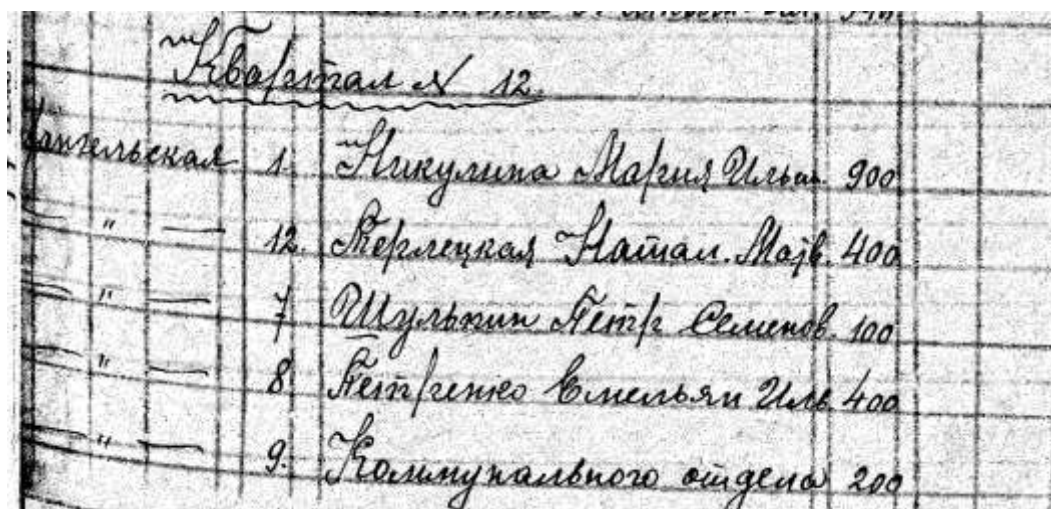 Квартал № 12.
1. Никулина Мария Ильин. 900
" — 12. Терлецкая Натал. Матв. 400
" — 7 Шулькин Петр Семенов. 100
" — 8 Петренко Емельян Иль. 400
" — 9. Коммунального отдела 200